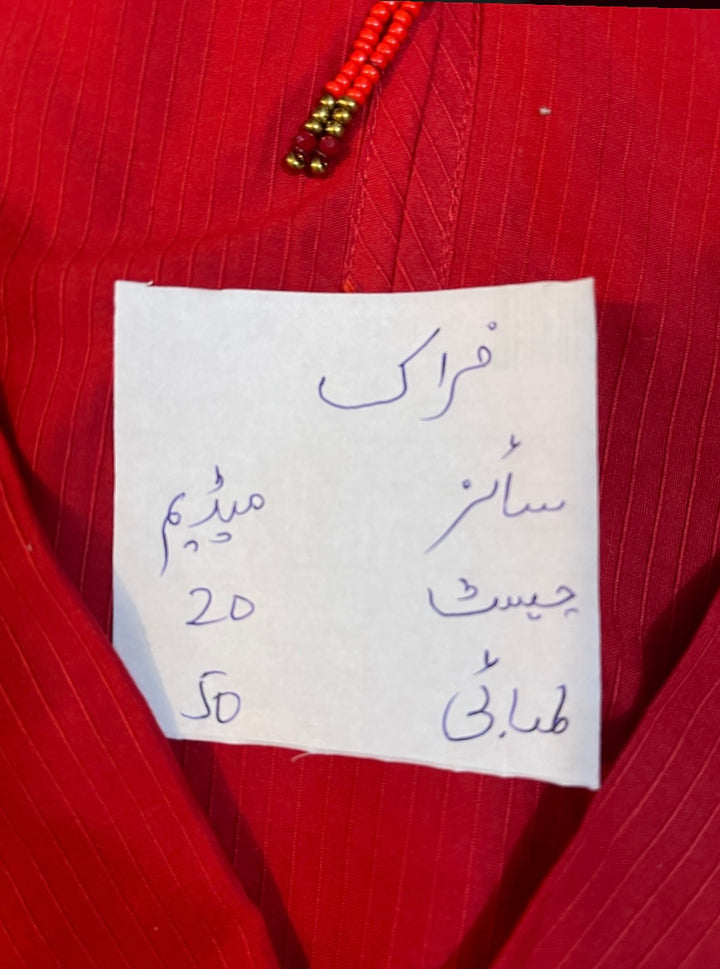 فراک
سائز میڈیم
چیسٹ 20
لمبائی 50